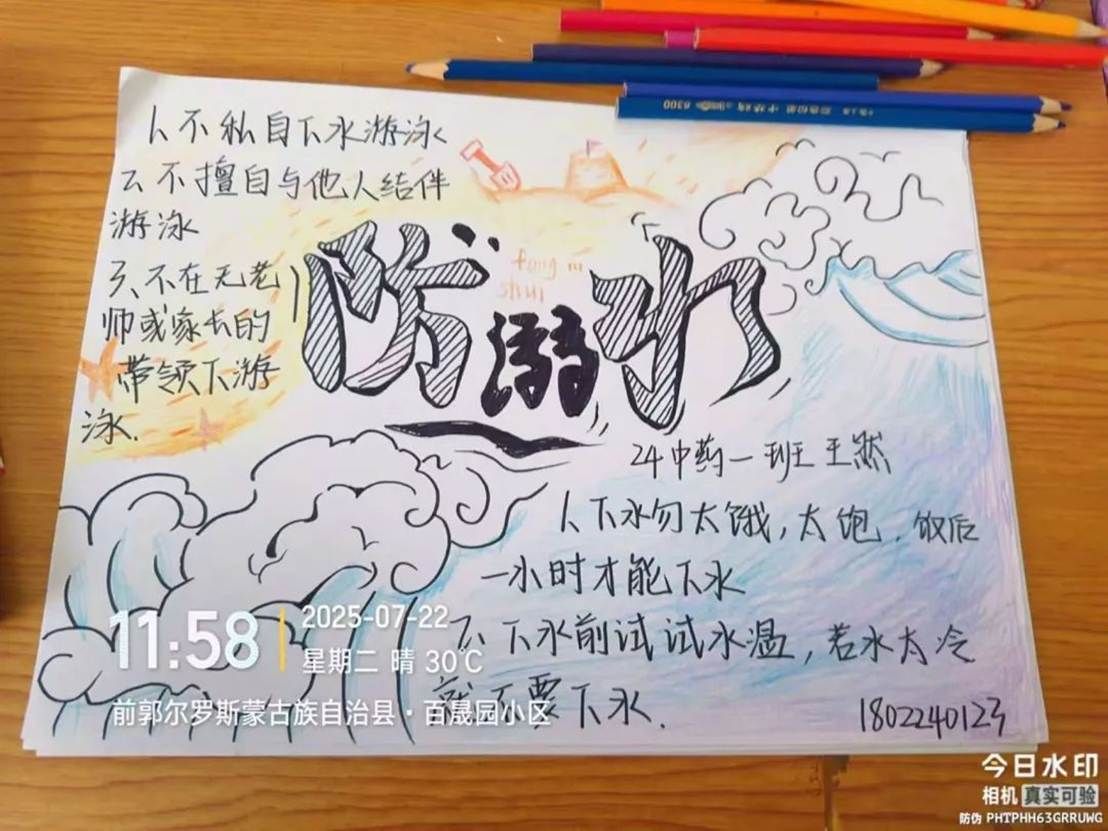 1、不私自下水游泳
2、不擅自与他人结伴
游泳
3、不在无老
师或家长的
带领下游
泳.
防溺水
fang ni
shui
24中药一班王然
1、下水勿太饿,太饱.饭后
一小时才能下水
2、下水前试试水温,若水太冷
就不要下水.
1802240123
11:58
2025-07-22
星期二 晴 30℃
前郭尔罗斯蒙古族自治县·百晟园小区
今日水印
相机 真实可验
防伪 PHTPHH63GRRUWG
6300